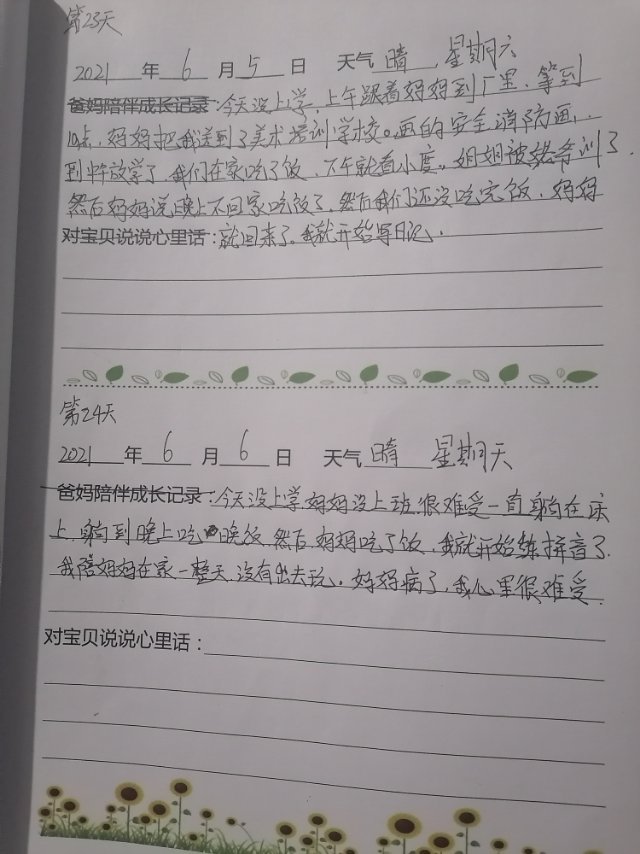 第23天
2021年6月5日 天气晴 星期六
爸妈陪伴成长记录:今天没上学,上午跟着妈妈到厂里,等到
10点,妈妈把我送到了美术培训学校。画的安全消防画,
到中午放学了,我们在家吃了饭,下午就看小度。姐姐被爸爸训了,
然后妈妈说晚上不回家吃饭了,然后我们还没吃完饭,妈妈
对宝贝说说心里话:就回来了。我就开始写日记。
第24天
2021年6月6日 天气晴 星期天
爸妈陪伴成长记录:今天没上学妈妈没上班很难受一直躺在床
上,躺到晚上吃晚饭,然后妈妈吃了饭,我就开始练拼音了.
我陪妈妈在家一整天没有出去玩。妈妈病了,我心里很难受.
对宝贝说说心里话: